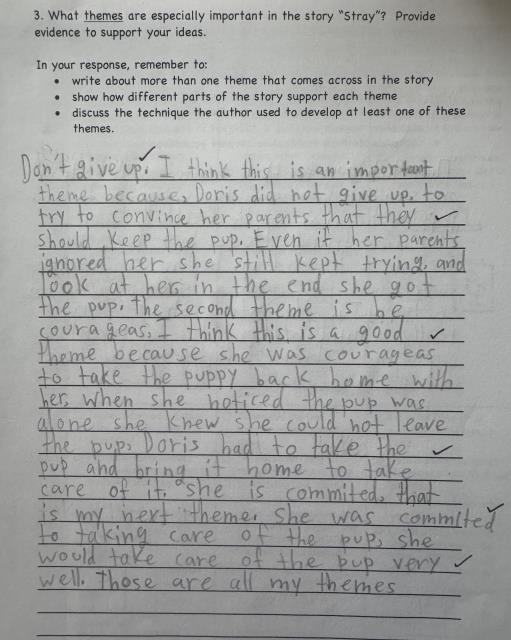 3. What themes are especially important in the story "Stray"? Provide
evidence to support your ideas.
In your response, remember to:
• write about more than one theme that comes across in the story
• show how different parts of the story support each theme
• discuss the technique the author used to develop at least one of these
themes.
Don't give up. I think this is an important
theme because, Doris did not give up, to
try to convince her parents that they
should keep the pup. Even if her parents
ignored her she still kept trying, and
look at her, in the end she got
the pup. the second theme is be
courageas, I think this is a good
theme because she was courageas
to take the puppy back home with
her, when she noticed the pup was
alone she knew she could not leave
the pup. Doris had to take the
pup and bring it home to take
care of it. she is commited. that
is my next theme. She was commited
to taking care of the pup, she
would take care of the pup very
well. Those are all my themes